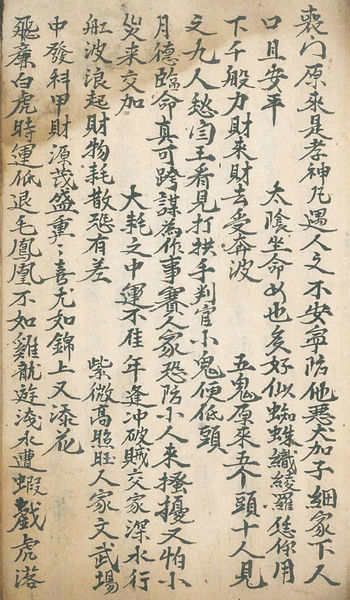 喪门原來是孝神凡遇人文不安寧防他悪大加子細家下人
口且安平　太陰坐命女也矣好似蜘蛛織綾羅恁你用
下千般力財来財去受奔波　五鬼原來五个頭十人見
之九人愁閆王看見打拱手判官小鬼便低頭
月德臨命真可跨謀為作事賽人家恐防小人来搔擾又怕小
災来交加　大耗之中運不佳年逢冲破賊交家深水行
舡波浪起財物耗散恐有差　紫微高照旺人家文武場
中發科甲財源茂盛重〻喜尤如錦上又漆花
飛廉白虎時運低退毛鳳凰不如雞龍遊淺水遭蝦戲虎落